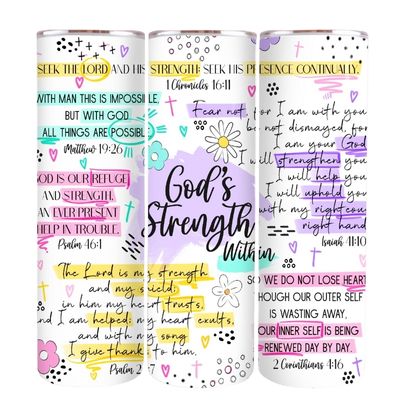 SEEK THE LORD AND HIS STRENGTH; SEEK HIS PRESENCE CONTINUALLY."
1 Chronicles 16:11
WITH MAN THIS IS IMPOSSIBLE,
BUT WITH GOD
ALL THINGS ARE POSSIBLE
Matthew 19:26
GOD IS OUR REFUGE
AND STRENGTH,
AN EVER PRESENT
HELP IN TROUBLE.
Psalm 46:1
The Lord is my strength
and my shield;
in him my heart trusts,
and I am helped; my heart exults,
and with my song
I give thanks to him.
Psalm 2 7
God's
Strength
Within
Fear not, for I am with you
be not dismayed, for
I am your God
I will strengthen you
I will help you
I will uphold you
with my righteou
right hand
Isaiah 41:10
SO WE DO NOT LOSE HEART
THOUGH OUR OUTER SELF
IS WASTING AWAY,
OUR INNER SELF IS BEING
RENEWED DAY BY DAY.
2 Corinthians 4:16